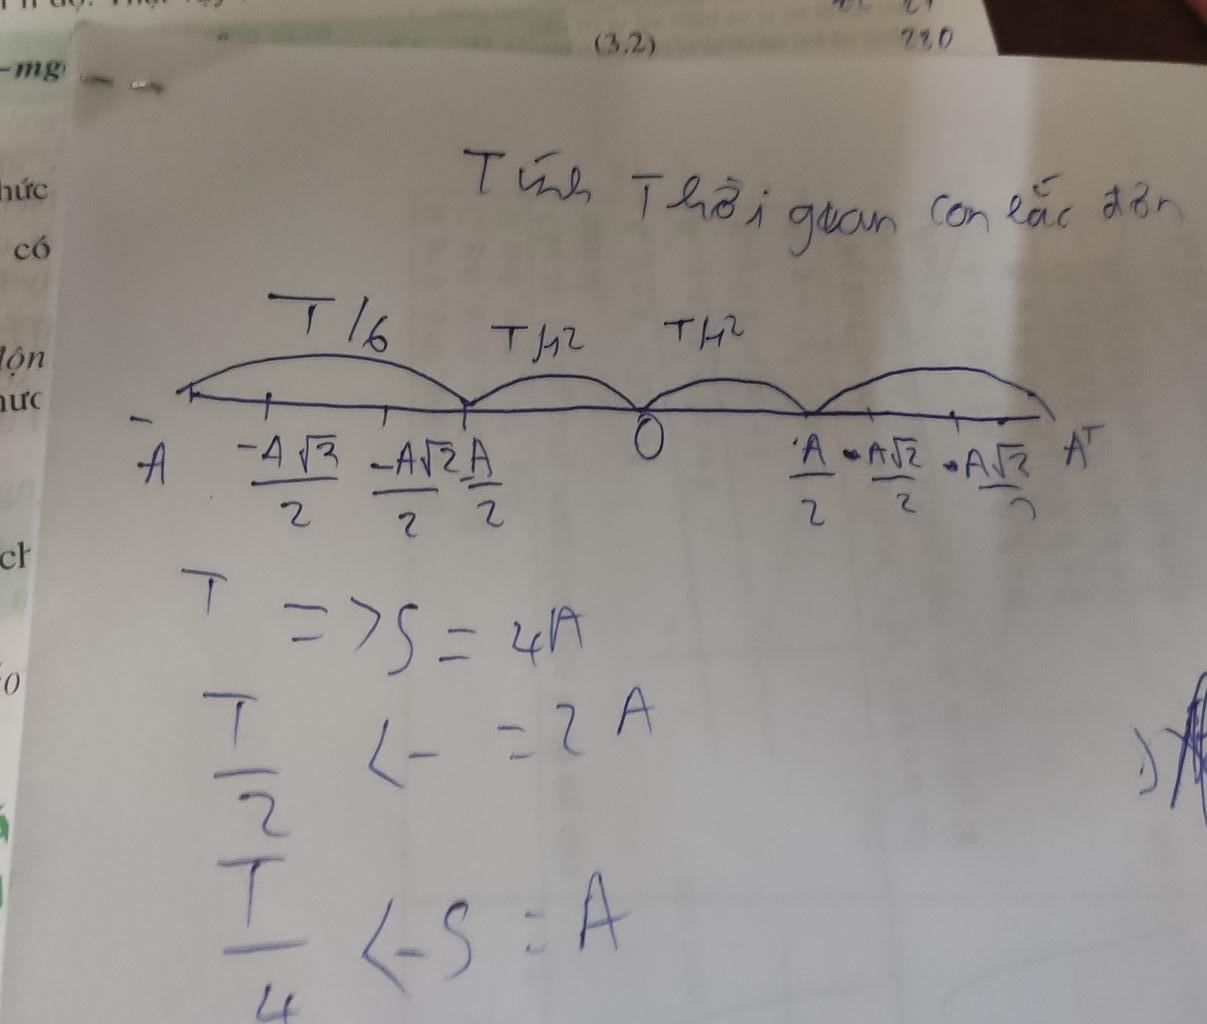 (3.2)
220
-mg
hức
có
Tính Thời gian con lắc đơn
T/6 T/12 T/12
-A -A√3/2 -A√2/2 A/2 O A/2 A√2/2 A√3/2 A
T => S = 4A
T/2 <- = 2A
T/4 <- S = A